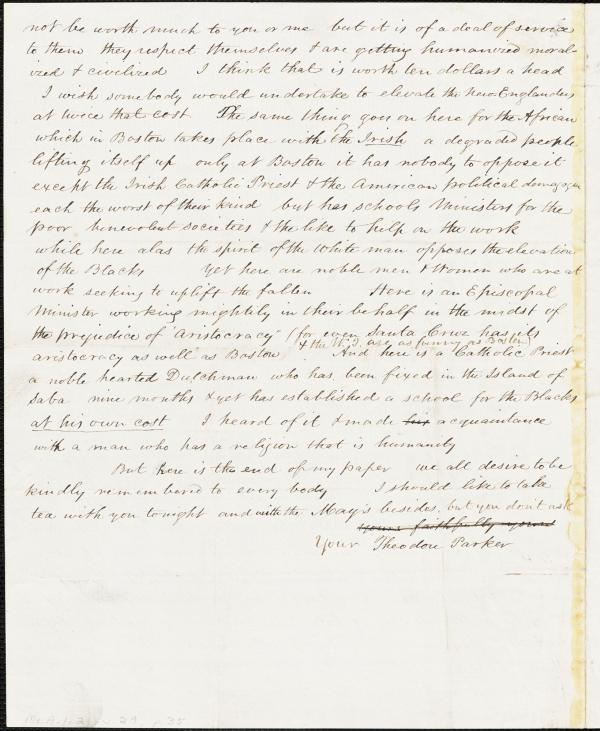 not be worth much to you or me but it is of a deal of service
to them they respect themselves & are getting humanized moral-
ized & civelized I think that is worth ten dollars a head
I wish somebody would undertake to elevate the New Englanders
at twice that cost. The same thing goes on here for the African
which in Boston takes place with the Irish a degraded people
lifting itself up only at Boston it has nobody to oppose it
except the Irish Catholic Priest & the American political demagogue
each the worst of their kind but has schools Ministers for the
poor benevolent societies & the like to help on the work
while here alas the spirit of the White man opposes the elevation
of the Blacks Yet here are noble men & Women who are at
work seeking to uplift the fallen Here is an Episcopal
Minister working mightily in their behalf in the midst of
the prejudice of "Aristocracy" (for even Santa Cruz has its
& the W.I. are as funny as Boston)
aristocracy as well as Boston And here is a Catholic Priest
a noble hearted Dutchman who has been fixed in the Island of
Saba nine months & yet has established a school for the Blacks
at his own cost I heard of it & made his acquaintance
with a man who has a religion that is humanity
But here is the end of my paper we all desire to be
kindly remembered to every body I should like to take
tea with you tonight and with the May's besides, but you don't ask
yours faithfully yours
Your Theodore Parker